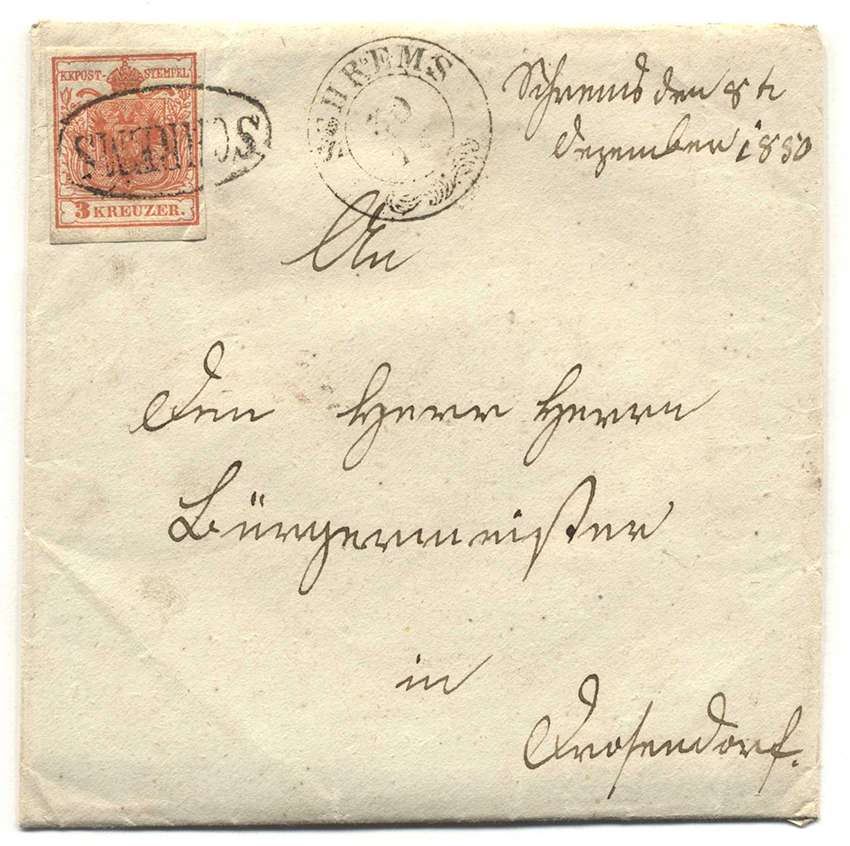 KKPOST-STEMPEL
3 KREUZER.
SCHREMS
SCHREMS
Schrems den 8t
Dezember 1850
An
Den Herr Herrn
Bürgermeister
in
Drosendorf.